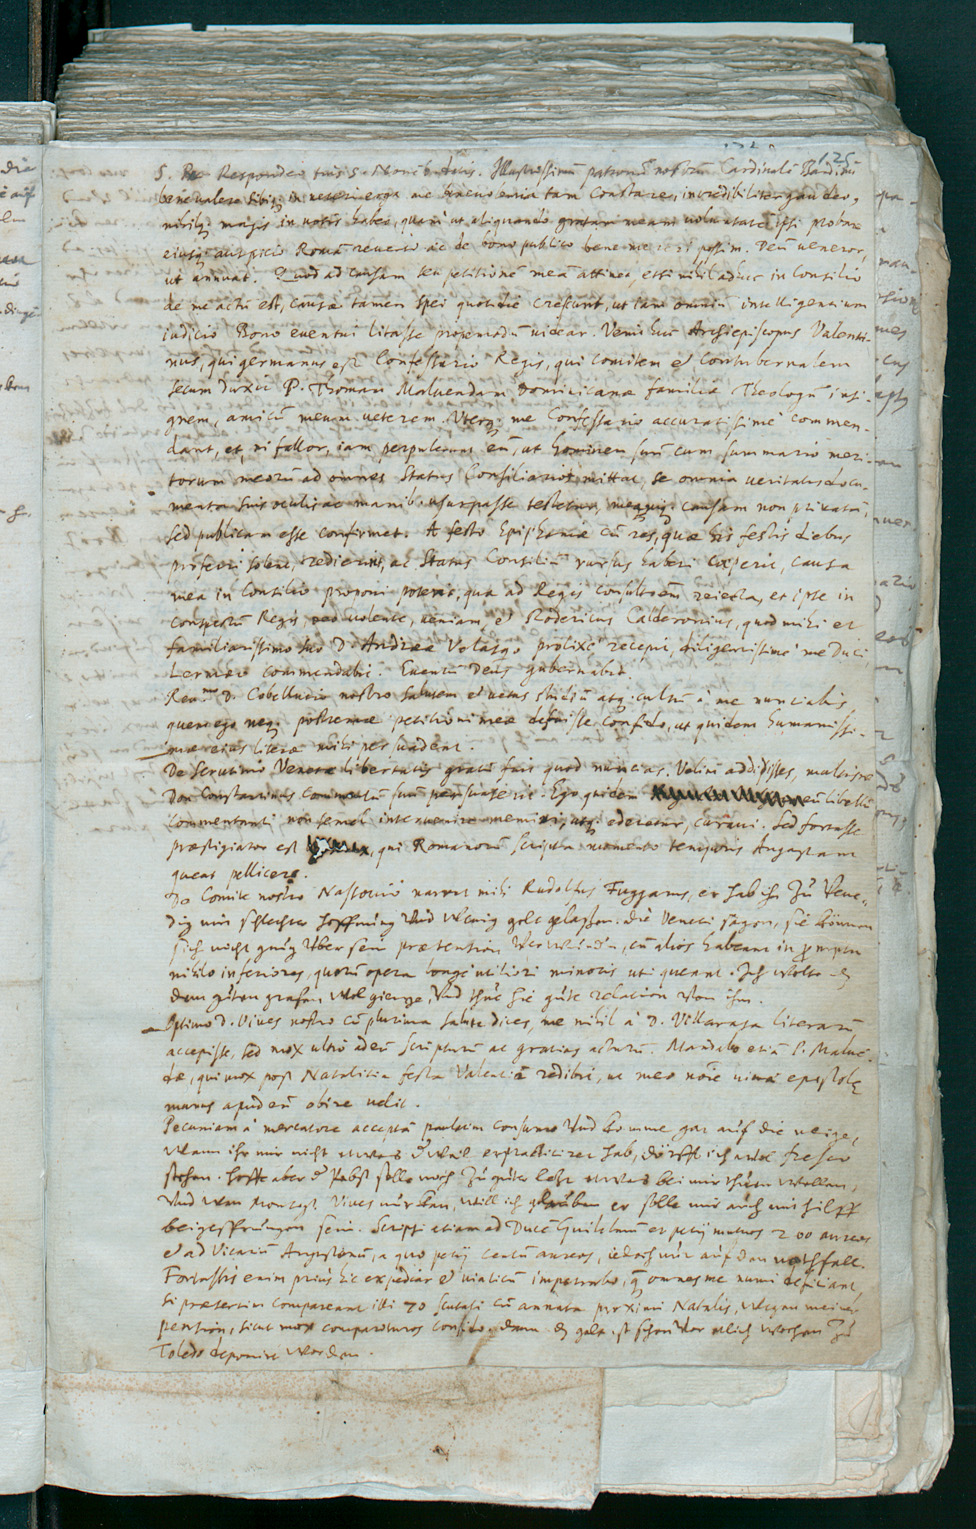 125
S. P. Respondeo tuis 5. Novembribus. Illustrissimum patronū nostrum Cardinalē Bandinū
bene valere sibiq; in veteri erga me benevolentia tam constare, incredibiliter gaudeo,
nihilq; magis in votis habeo, quam ut aliquando gratam meam voluntatem ipsi probare
eiusq; auspicio Romā reverti ac de bono publico bene mereri possim. Deū veneror,
ut annuat. Quod ad causam seu petitionē meā attinet, etsi nihil adhuc in Consilio
de me actū est, causae tamen spei quotidie crescunt, ut iam omniū intelligentium
iudicio Bono eventui litasse propemodū videar. Venit huc Archiepiscopus Valenti-
nus, qui germanus est Confessario Regis, qui comitem et contubernalem
secum duxit P. Thomam Maluendam Dominicanae familiae Theologū insi-
gnem, amicū meum veterem. Uterq; me Confessario accuratissime commen-
dant, et, ni fallor, iam perpulerunt eū, ut hominem suū cum summario meri-
torum meorū ad omnes Status Consiliarios mittat, se omnia veritatis docu-
menta suis oculis ac manib. usurpasse testetur, meamq; causam non privatā,
sed publicam esse confirmet. A festo Epiphaniae cū res, quae his festis diebus
proferri solent, redierint, ac Status Consiliū rursus haberi coeperit, causa
mea in Consilio proponi poterit, qua ad Regis consultorē reiecta, et ipse in
conspectū Regis, deo volente, veniam, et Rodericus Calderonius, quod mihi et
familiarissimo suo D. Andreae Velasqo prolixe recepit, diligentissime me Duci
Lermae commendabit. Eventū Deus gubernabit.
Revmo D. Cobellucio nostro salutem et vetus studiū atq; cultū a me nuntiabis
quem ego neq; postremae petitioni meae defuisse confido, ut quidem humanissi-
mae eius literae mihi persuadent.
De Scrutinio Venetae libertatis gratū facis quod nuncias. Velim addidisses, malusne
Don Constantinus commentū suū persuaserit. Ego quidem eū libellū
commentanti non semel intervenire memini, utq; ederetur, curavi. Sed fortasse
praestigiator est, qui Romanorū scripta momento temporis Augustam
queat pellicere.
De Comite nostro Nassovio narrat mihi Rudolphus Fuggarus, er hab ihn zu Vene-
dig mit schlechter hoffnung und wenig gelt gelassen. die Veneti sagen, sie können
sich nicht gnug uber sein praetention verwundern, cū alios habeant in promptu
nihilo inferiores, quorū opera longe utiliori minoris uti queant. Ich wolte dz
dem guten grafen wol gienge, und thue hie gute relation von ihm.
Optimo D. Vives nostro cū plurima salute dices, me nihil a D. Villarasa literarū
accepisse, sed mox ultro ad eū scripturū ac gratias acturū. Mandabo etiā P. Maluē-
dae, qui mox post Natalitia festa Valentiā redibit, ut meo noīe vivae epistolę
munus apud eū obire velit.
Pecuniam a mercatore acceptā paulatim consumo und komme gar auf die neige,
wann ihr mir nicht etwas dweil erpracticiret hab, dörfft ich wol fresco
stehen. hoffe aber dr Pabst solle noch zu guter letzt etwas bei mir thuen wöllen,
und wan Monsig.r Vives nur kan, will ich glauben er solle mir auch mit hilff
beigesprungen sein. Scripsi etiam ad Ducē Guilielmum et petij mutuos 200 aureos
et ad Vicariū Augustanū, a quo petij centū aureos, iedoch nur auf den nothfall.
Fortassis enim prius hic expediar et viaticū impetrabo, q̄ omnes me numi deficiant,
si praesertim compareant illi 70 scutati cū annata proximi Natalis, wegen meiner
pension, sicut mox comparituros confido. dann dz gelt ist schon vor etlich wochen zu
Toledo deponirt worden.